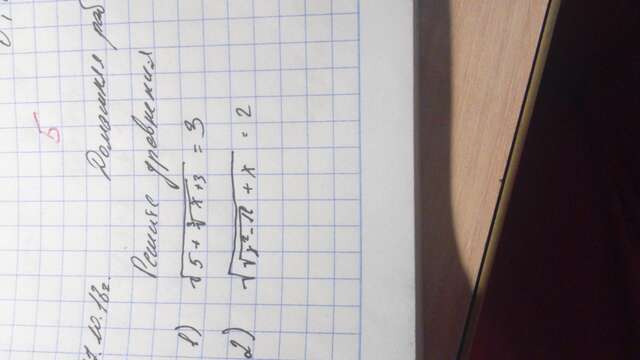 5
10.18г.
Домашняя раб
Решите уравнения
1) √(5 + ∛(x+3)) = 3
2) √(√(x² - 12) + x) = 2